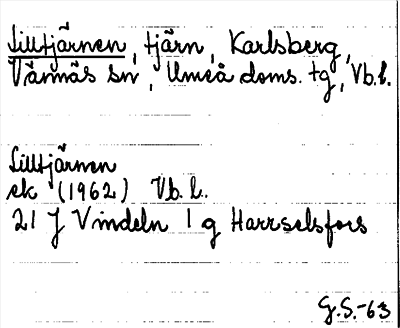 Lilltjärnen, tjärn, Karlsberg,
Vännäs sn, Umeå doms. tg, Vb.l.
Lilltjärnen
ek (1962) Vb.l.
21 J Vindeln 1 g Harrselsfors
G.S.-63